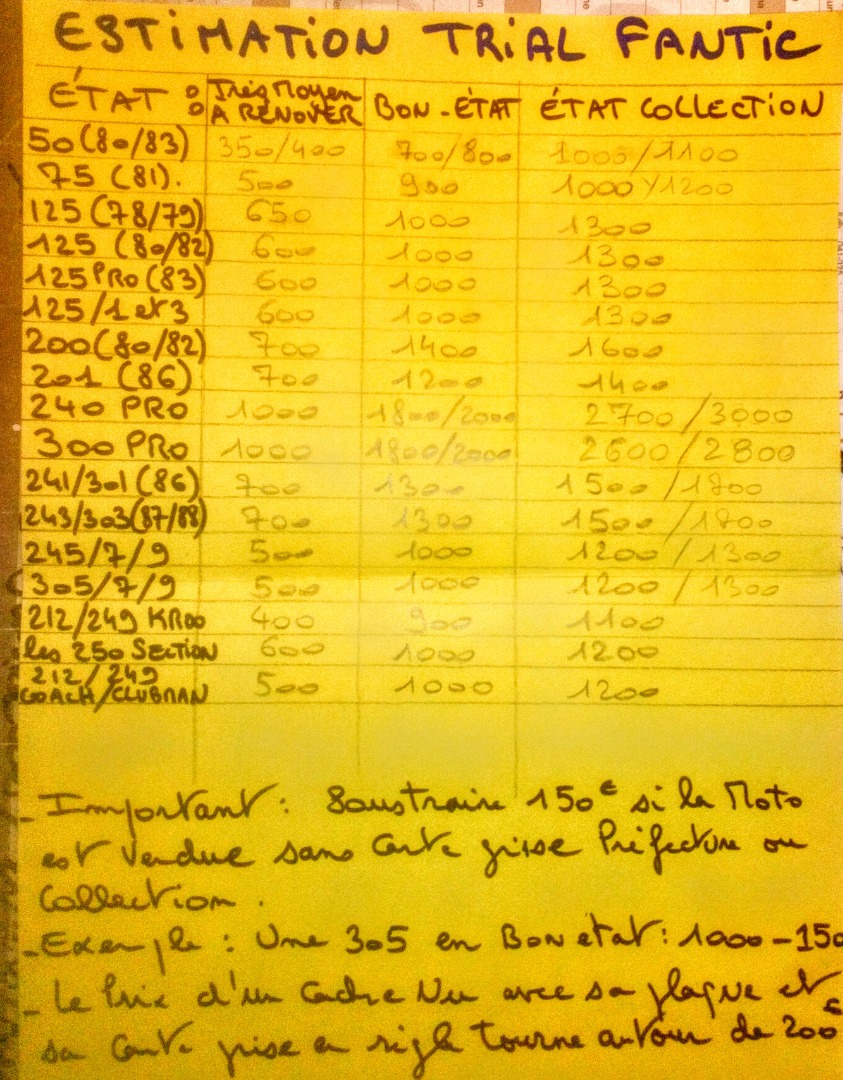 ESTIMATION TRIAL FANTIC
ÉTAT : Très Moyen A RENOVER BON-ÉTAT ÉTAT COLLECTION
50 (80/83) 350/400 700/800 1000/1100
75 (81). 500 900 1000/1200
125 (78/79) 650 1000 1300
125 (80/82) 600 1000 1300
125 PRO (83) 600 1000 1300
125/1 et 3 600 1000 1300
200 (80/82) 700 1400 1600
201 (86) 700 1200 1400
240 PRO 1000 1800/2000 2700/3000
300 PRO 1000 1800/2000 2600/2800
241/301 (86) 700 1300 1500/1700
243/303 (87/88) 700 1300 1500/1700
245/7/9 500 1000 1200/1300
305/7/9 500 1000 1200/1300
212/249 KROO 400 900 1100
les 250 SECTION 600 1000 1200
212/249
COACH/CLUBMAN 500 1000 1200
- Important : Soustraire 150€ si la Moto
est vendue sans Carte grise Préfecture ou
Collection.
- Exemple : Une 305 en Bon état : 1000 - 150
- Le Prix d'un Cadre Nu avec sa plaque et
sa Carte grise en règle tourne autour de 200€